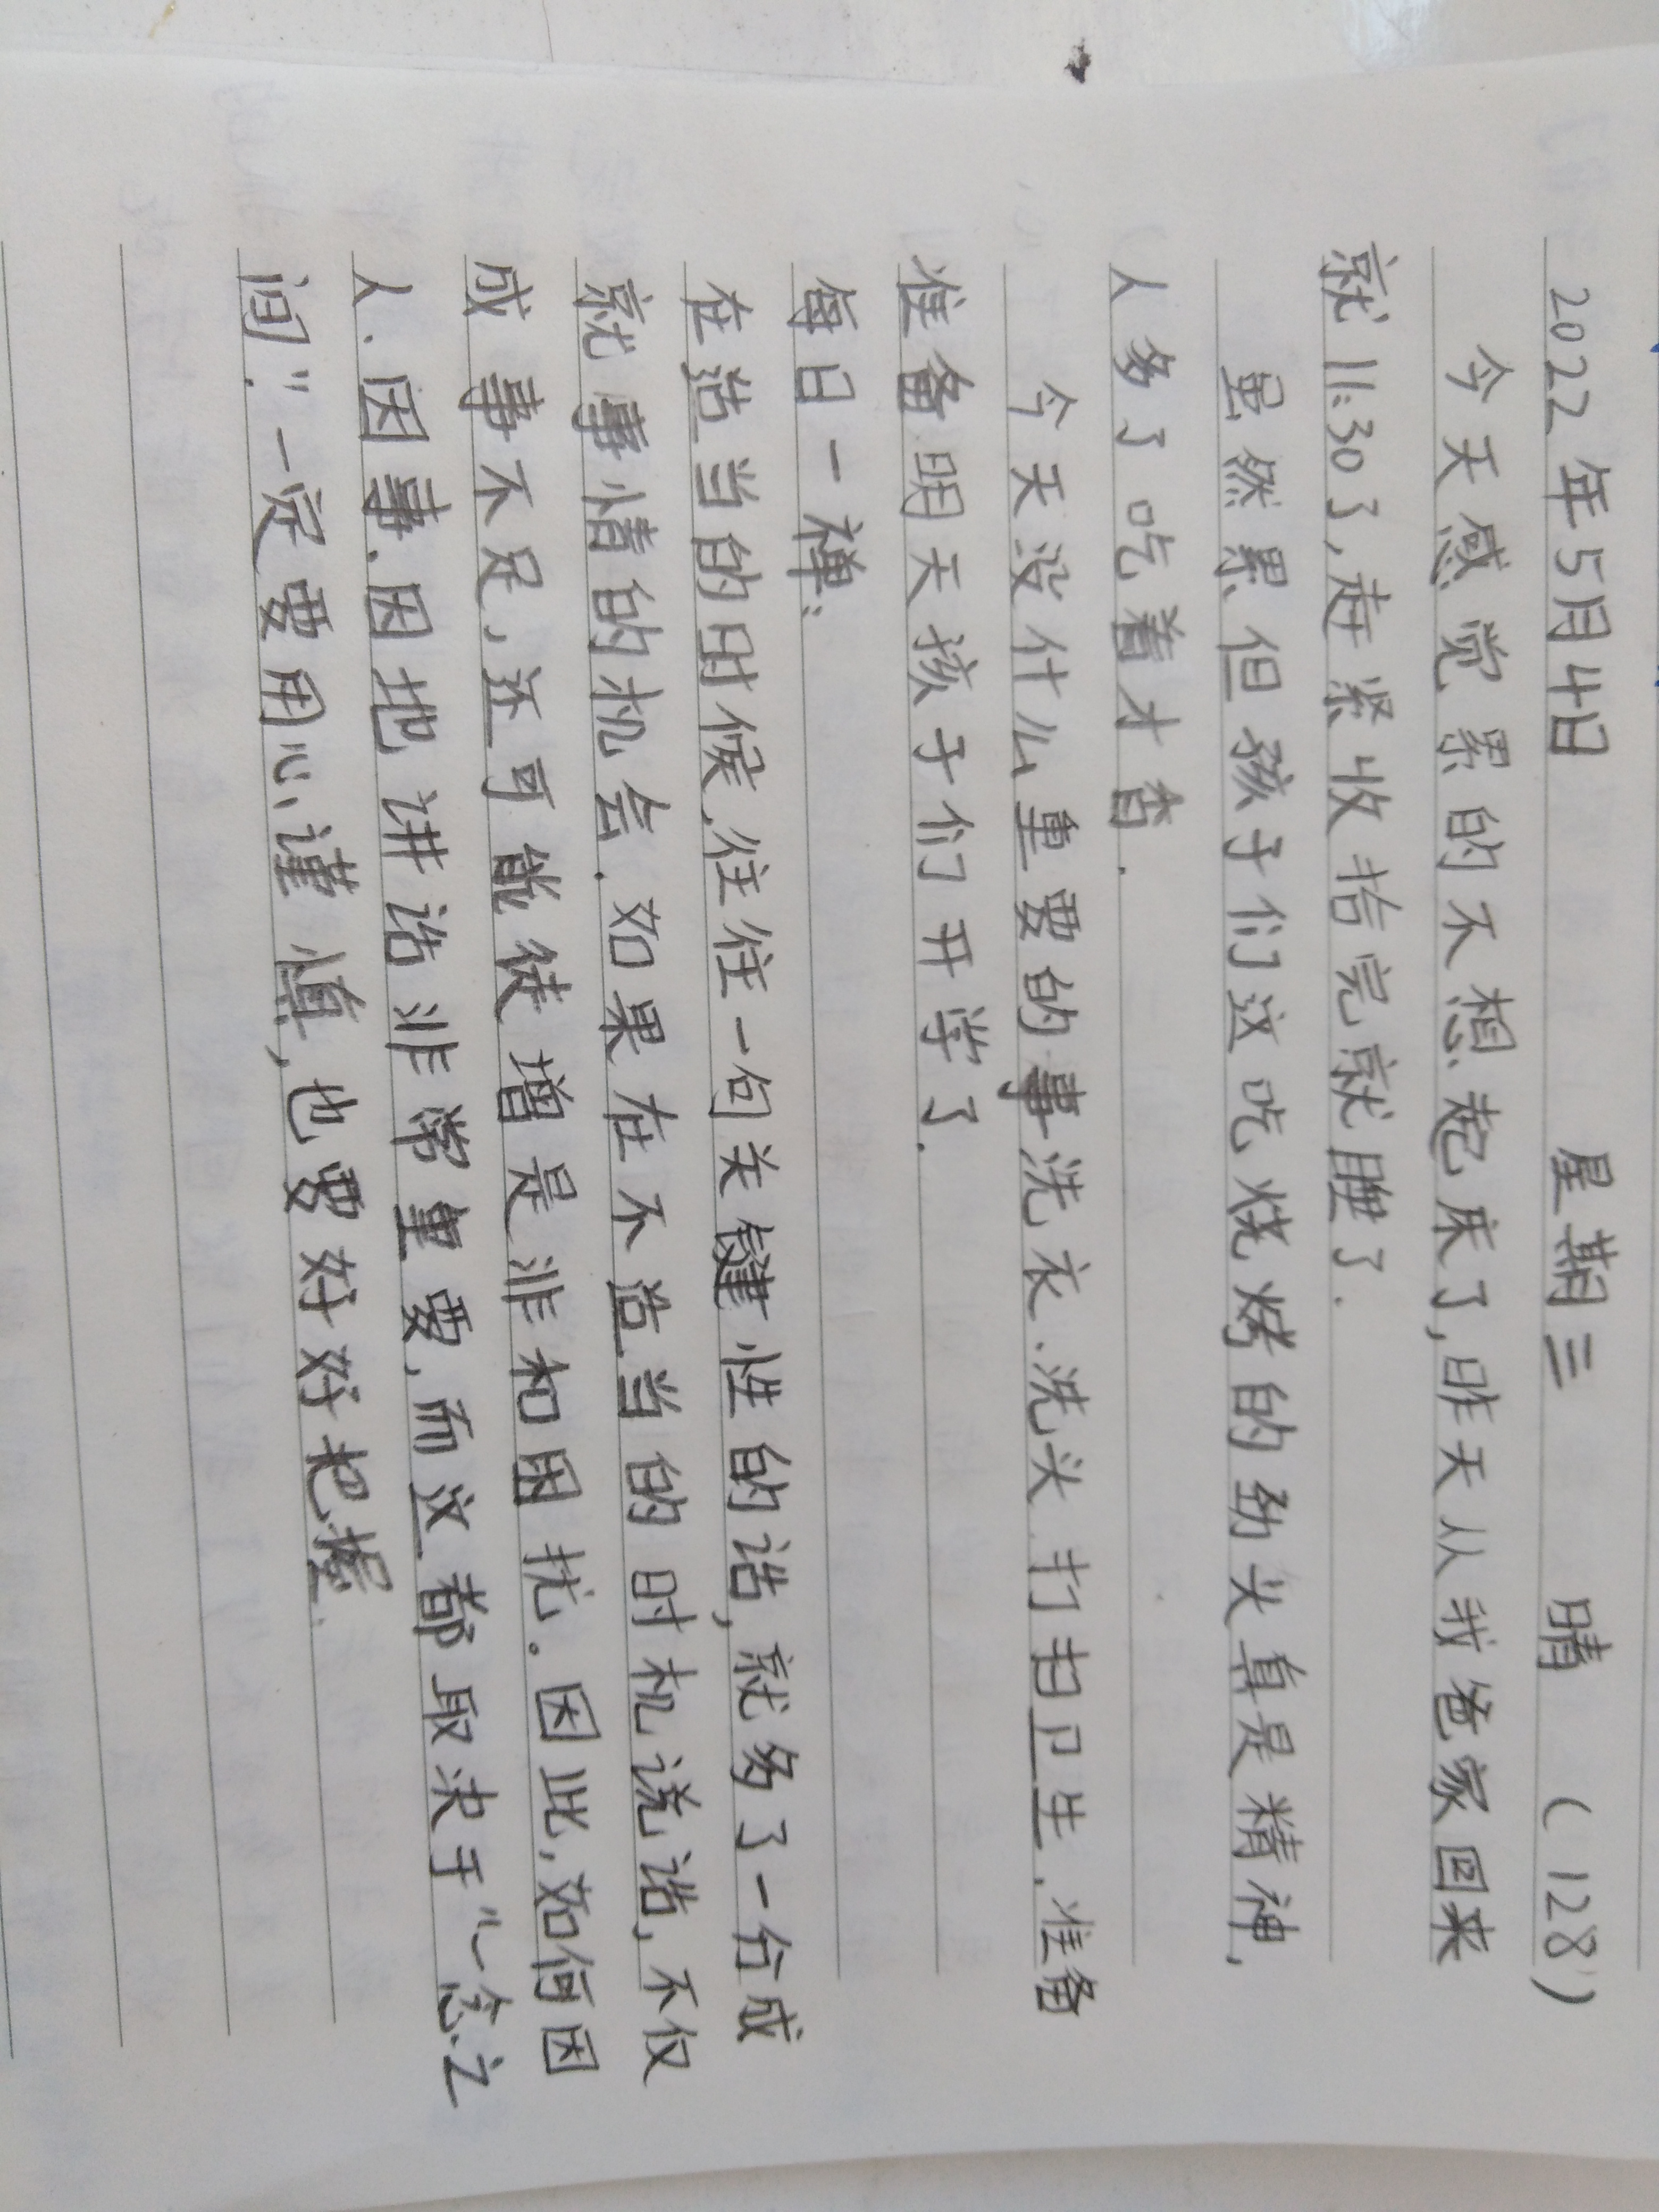 2022年5月4日 星期三 晴 (128)
今天感觉累的不想起床了,昨天从我爸家回来
就11:30了,赶紧收拾完就睡了.
虽然累但孩子们这吃烧烤的劲头真是精神,
人多了吃着才香.
今天没什么重要的事洗衣.洗头.打扫卫生.准备
准备明天孩子们开学了.
每日一禅:
在适当的时候,往往一句关键性的话,就多了一份成
就事情的机会.如果在不适当的时机说话,不仅
成事不足,还可能徒增是非和困扰。因此,如何因
人.因事.因地讲话非常重要,而这都取决于"一念之
间."一定要用心谨慎,也要好好把握.